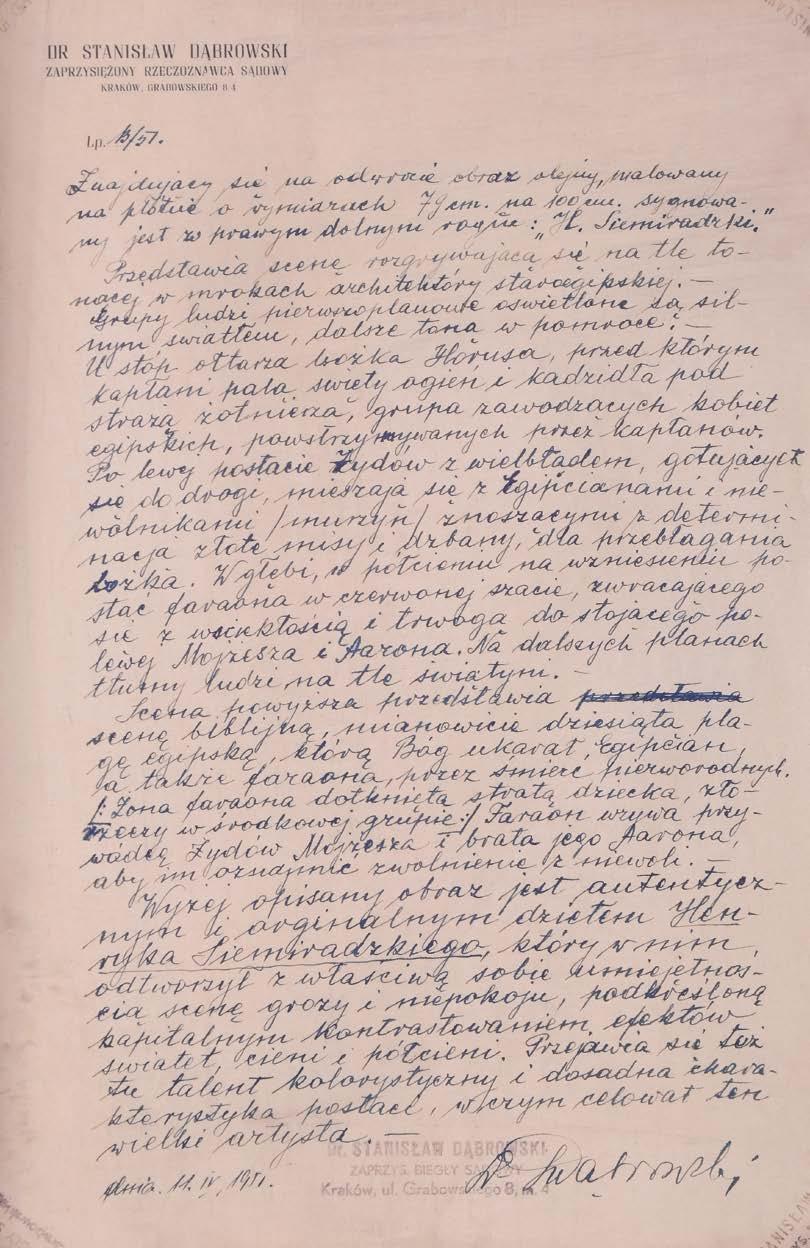 DR STANISŁAW DĄBROWSKI
ZAPRZYSIĘŻONY RZECZOZNAWCA SĄDOWY
KRAKÓW, GRABOWSKIEGO 8 4
Lp. 13/51.
Znajdujący się na odwrocie obraz olejny, malowany
na płótnie o wymiarach 79 cm. na 100 cm. sygnowa-
ny jest w prawym dolnym rogu: "H. Siemiradzki."
Przedstawia scenę rozgrywającą się na tle to-
nącej w mrokach architektóry staroegipskiej. —
Grupy ludzi pierwszoplanowe oświetlone są sil-
nym światłem, dalsze toną w pomroce. —
U stóp ołtarza bożka Horusa, przed którym
kapłani palą święty ogień i kadzidła pod
strażą żołnierza, grupa zawodzących kobiet
egipskich, powstrzymywanych przez kapłanów.
Po lewej postacie Żydów z wielbłądem, gotujących
się do drogi, mieszają się z Egipcjanami i nie-
wolnikami /murzyn/ znoszącymi z determi-
nacją złote misy i dzbany, dla przebłagania
bożka. W głębi, w półcieniu na wzniesieniu po-
stać faraona w czerwonej szacie, zwracającego
się z wściekłością i trwogą do stojącego po
lewej Mojżesza i Aarona. Na dalszych planach
tłumy ludzi na tle świątyni. —
Scena powyższa przedstawia przedstawia
scenę biblijną, mianowicie dziesiątą pla-
gę egipską, którą Bóg ukarał Egipcian,
a także faraona, przez śmierć pierworodnych.
/: Żona faraona dotknięta stratą dziecka, zło-
rzeczy w środkowej grupie :/ Faraon wzywa przy-
wódcę Żydów Mojżesza i brata jego Aarona,
aby im oznajmić zwolnienie z niewoli. —
Wyżej opisany obraz jest autentycz-
nym i orginalnym dziełem Hen-
ryka Siemiradzkiego, który w nim
odtworzył z właściwą sobie umiejętnoś-
cią scenę grozy i niepokoju, podkréśloną
kapitalnym kontrastowaniem efektów
świateł, cieni i półcieni. Przejawia się też
tu talent kolorystyczny i dosadna chara-
kterystyka postaci, w czym celował ten
wielki artysta. —
Dr. STANISŁAW DĄBROWSKI
ZAPRZYS. BIEGŁY SĄDOWY
Kraków, ul. Grabowskiego 8, m. 4
dnia 11. IV, 1951.
Dr Dąbrowski